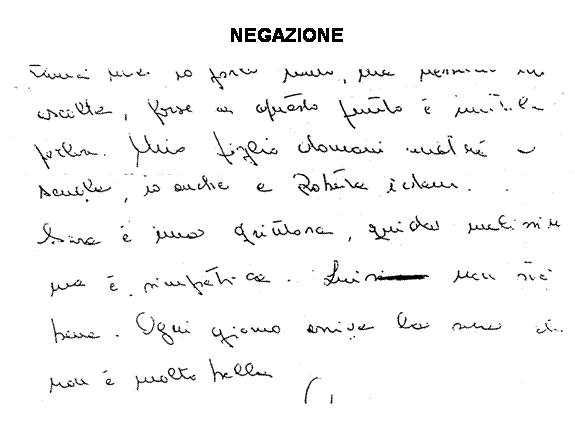 NEGAZIONE
io parlo , ma nessuno mi
ascolta, forse a questo punto è inutile
parlare. Mio figlio domani andrà a
scuola, io anche e Roberta idem.
Sara è una grintosa, guida
ma è simpatica. non sta
bene. Ogni giorno arriva la sera
non è molto bella